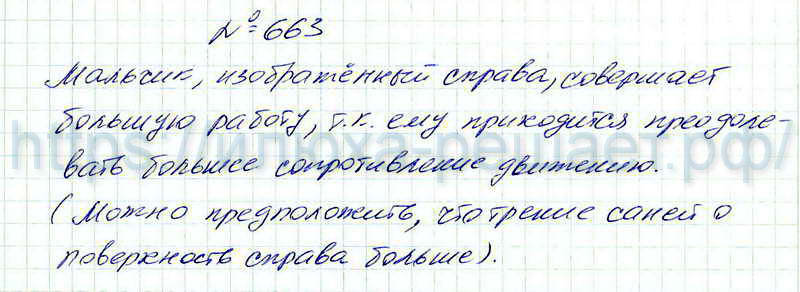 №663
Мальчик, изображённый справа, совершает
большую работу, т.к. ему приходится преодоле-
вать большее сопротивление движению.
(Можно предположить, что трение саней о
поверхность справа больше).
https://илюха-решает.рф/